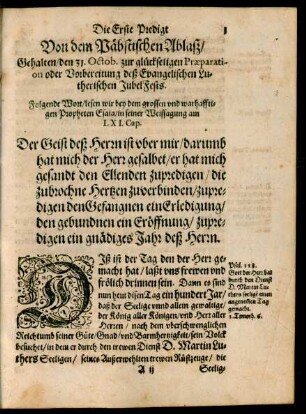 Die Erste Predigt
Von dem Päbstischen Ablaß/
Gehalten/den 31. Octob. zur glückseligen Præparati-
on oder Vorbereitung deß Evangelischen Lu-
therischen Jubel Fests.
Folgende Wort/lesen wir bey dem grossen und warhaffti-
gen Propheten Esaia/in seiner Weissagung am
LXI. Cap.
Der Geist deß Herrn ist vber mir/darumb
hat mich der Herr gesalbet/er hat mich
gesandt den Ellenden zupredigen/die
zubrochne Hertzen zuverbinden/zupre-
digen den Gefangnen ein Erledigung/
den gebundnen ein Eröffnung/zupre-
digen ein gnädiges Jahr deß Herrn.
DIß ist der Tag den der Herr ge-
macht hat/laßt vns frewen und
frölich drinnen sein. Dann es sind
nun heut disen Tag ein hundert Jar/
daß der Seelige vnnd allein gewaltige/
der König aller Königen/vnd Herr aller
Herren/nach dem vberschwenglichen
Reichtumb seiner Güte/Gnad/vnd Barmhertzigkeit/sein Volck
besucht/in dem er durch den trewen Dienst D. Martin Lu-
thers Seeligen/seines Außerwehlten trewen Rüstzeuge/die
A ij
Seelig-
Psal. 118.
Gott der Herr hat
durch den Dienst
D. Martin Lu-
thers seelige einen
angenehmen Tag
gemacht.
1. Timoth. 6.